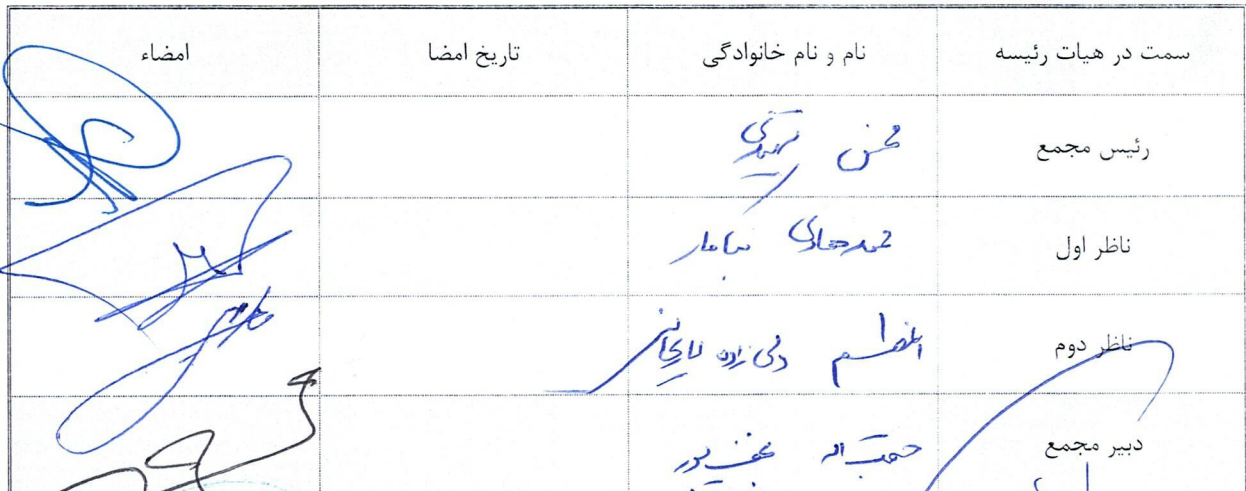 سمت در هیات رئیسه نام و نام خانوادگی تاریخ امضا امضاء
رئیس مجمع محسن
ناظر اول محمدهادی
ناظر دوم ابوالقاسم ولی زاده
دبیر مجمع حجت اله نجف پور